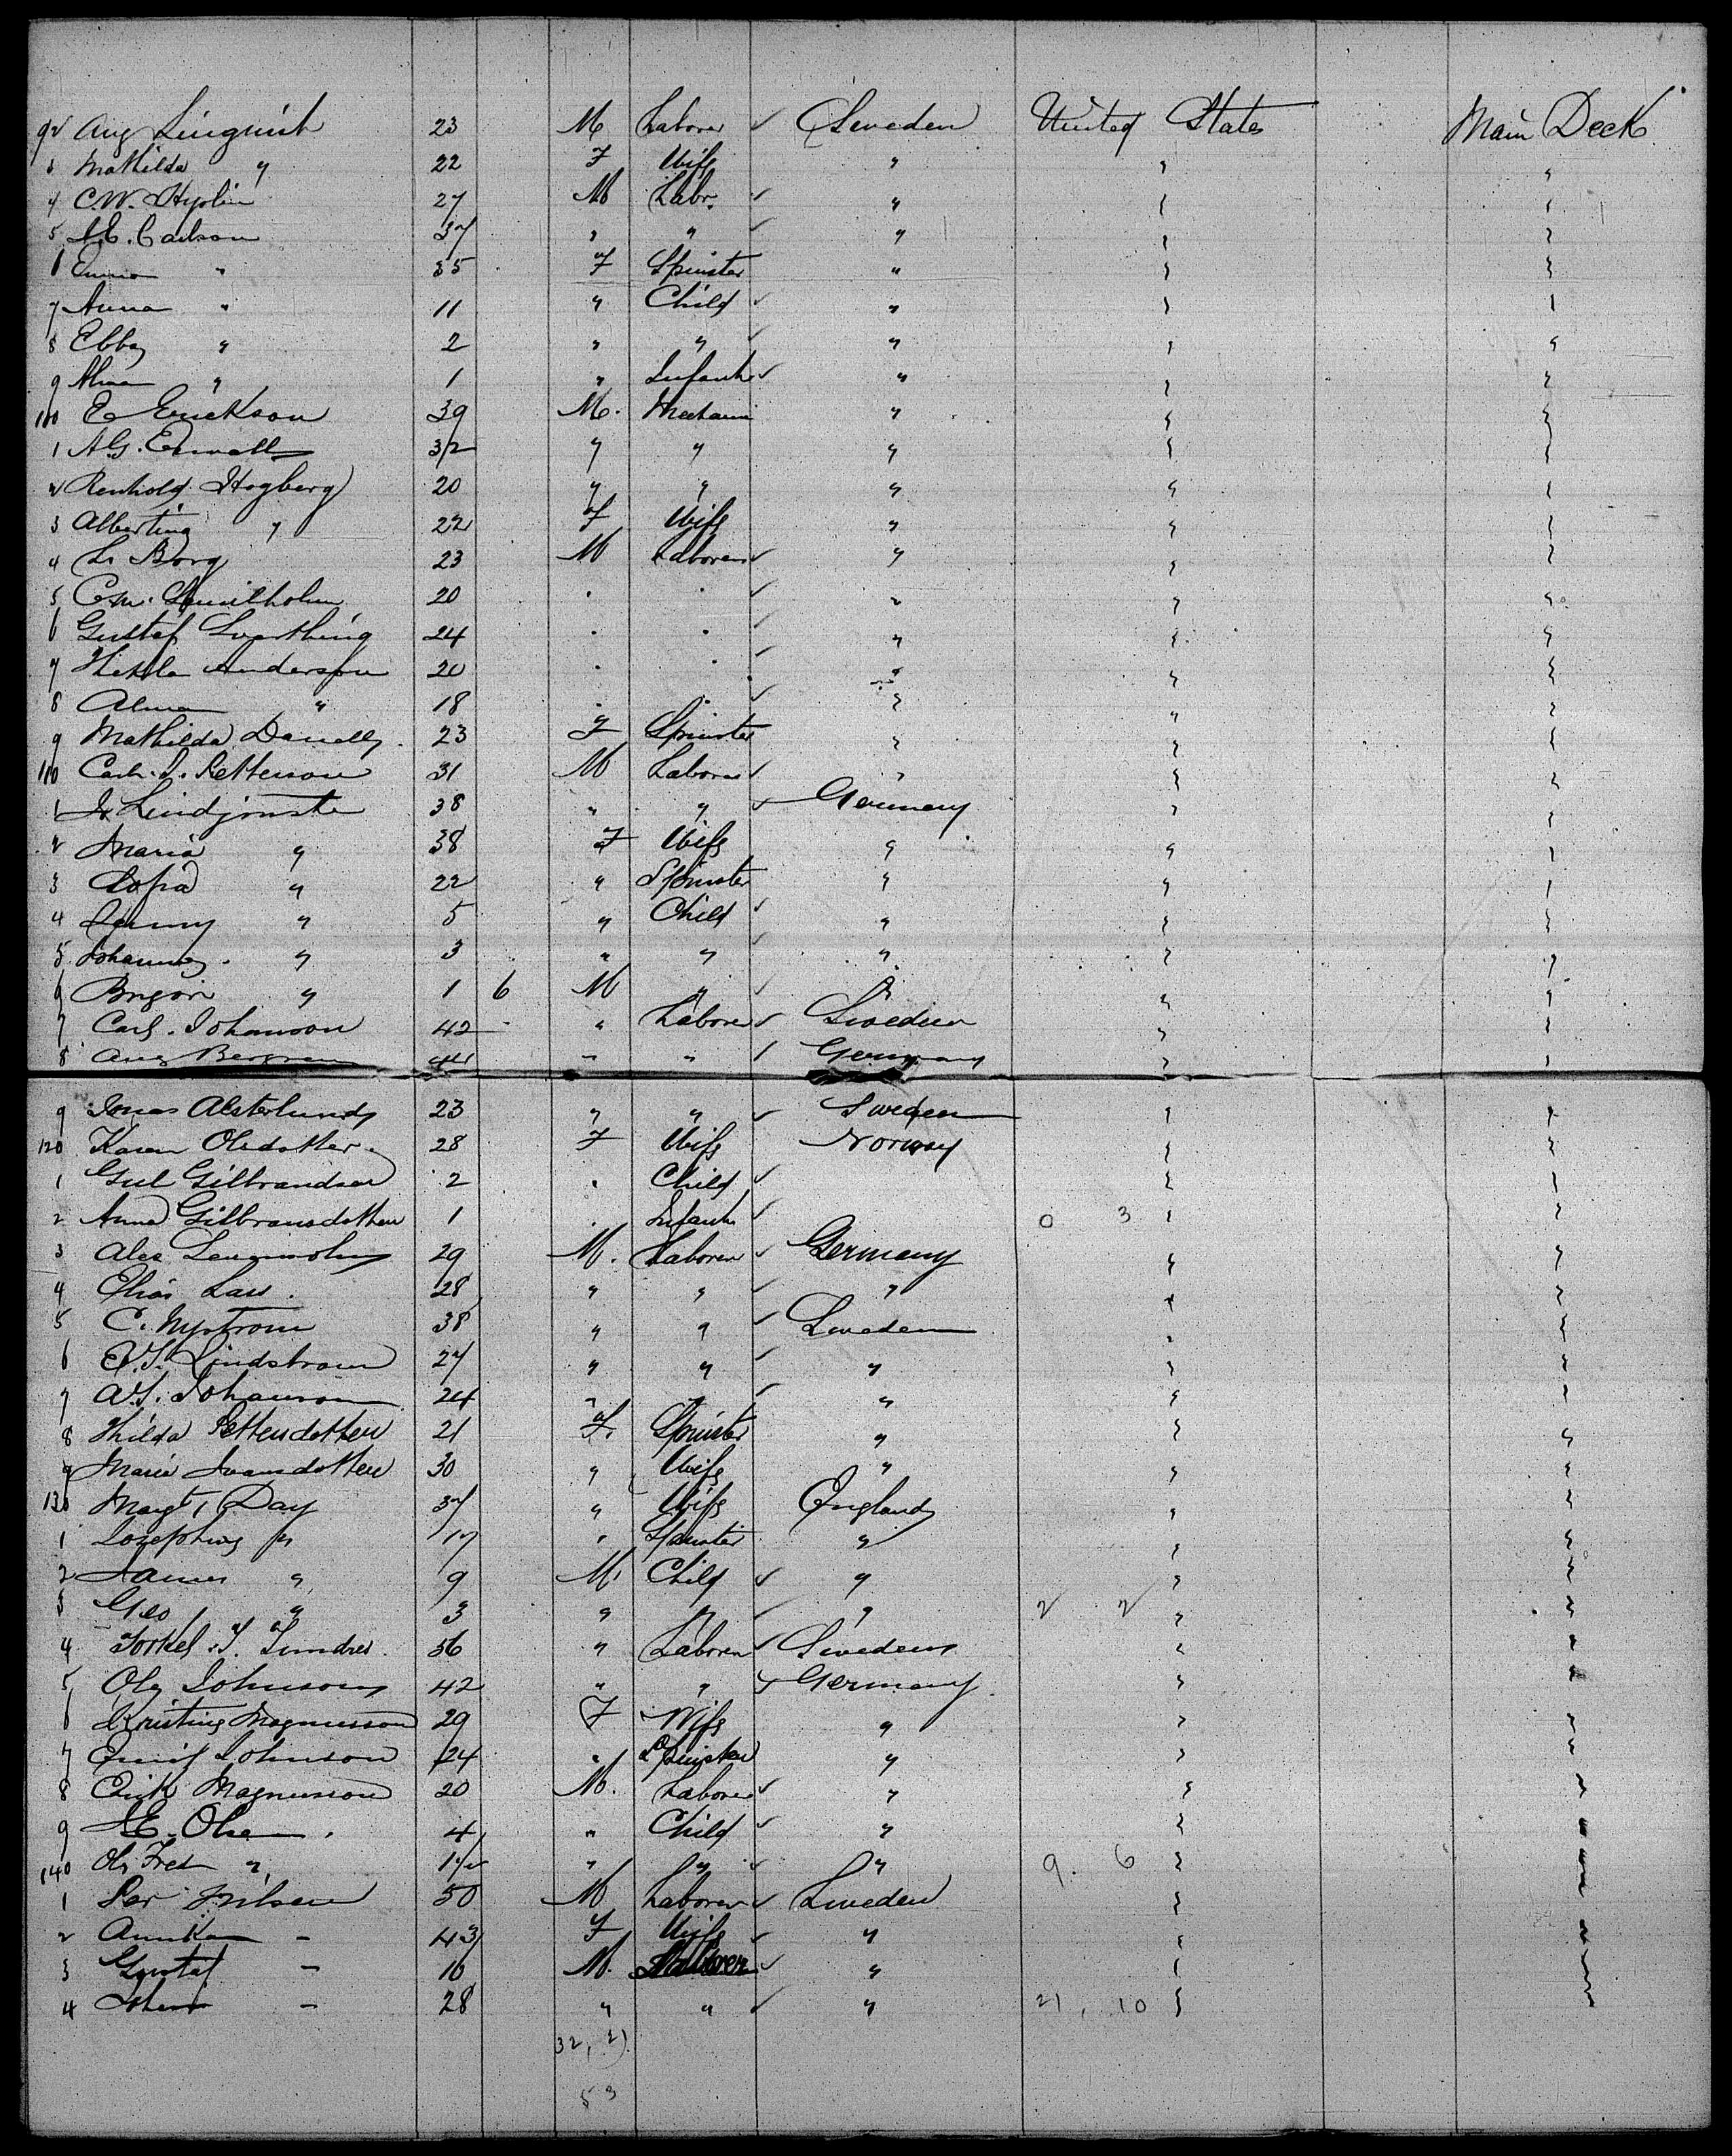 92 Aug Linquist 23 M Laborer ✓ Sweden United States Main Deck
3 Mathilda " 22 F Wife " " "
4 C.W. Hyolin 27 M Labr. ✓ " " "
5 A.E. Carlson 37 " " ✓ " " "
6 Emma " 35 F Spinster " " "
7 Anna " 11 " Child ✓ " " "
8 Ebba " 2 " " ✓ " " "
9 Alma " 1 " Infant ✓ " " "
100 E Erickson 39 M. Mechanic " " "
1 A.G. 32 " " " " "
2 Renhold Hogberg 20 " " " " "
3 Albertina " 22 F Wife " " "
4 L. Borg 23 M Laborer ✓ " " "
5 20 " " ✓ " " "
6 Gustaf 24 " " ✓ " " "
7 Anderson 20 " " ✓ " " "
8 Alma " 18 " " ✓ " " "
9 Mathilda 23 F Spinster " " "
110 Carl. J. Petterson 31 M Laborer ✓ " " "
1 38 " " ✓ Germany " "
2 Maria " 38 F Wife " " "
3 Sofia " 22 " Spinster " " "
4 Jenny " 5 " Child ✓ " " "
5 Johanna " 3 " " ✓ " " "
6 " 1 6 M " ✓ " " "
7 Carl. Johanson 42 " Laborer ✓ Sweden " "
8 Aug 44 " " ✓ Germany " "
9 Jonas Alsterlund 23 " " ✓ Sweden " "
120 Karen Olsdotter 28 F Wife Norway " "
1 Gul Gilbrandsen 2 " Child ✓ " "
2 Anna Gilbransdotter 1 " Infant ✓ 0 3 " "
3 Alex 29 M. Laborer ✓ Germany " "
4 Elias Lass. 28 " " ✓ " " "
5 C. Nystrom 38 " " ✓ Sweden " "
6 Lindstrom 27 " " ✓ " " "
7 Johanson 24 " " ✓ " " "
8 Hilda Pettersdotter 21 F. Spinster " " "
9 Maria Svansdotter 30 " Wife " " "
130 Margt. Day 37 " Wife England " "
1 Josephine " 17 " Spinster " " "
2 James " 9 M. Child ✓ " " "
3 Geo " 3 " " ✓ " 2 2 " "
4 Torkel 56 " Laborer ✓ Sweden " "
5 Ole Johnson 42 " " ✓ Germany " "
6 Kristine Magnusson 29 F Wife " " "
7 Johnson 24 " Spinster " " "
8 Erik Magnusson 20 M. Laborer ✓ " " "
9 E. Olsen 4 " Child ✓ " " "
140 Ole " 1 1/2 " " ✓ " 9. 6 " "
1 Per Nilsen 50 M Laborer ✓ Sweden " "
2 Annika - 43 F Wife ✓ " " "
3 Gustaf - 16 M. Laborer ✓ " " "
4 - 28 " " ✓ " 21, 10 " "
32, 21
53